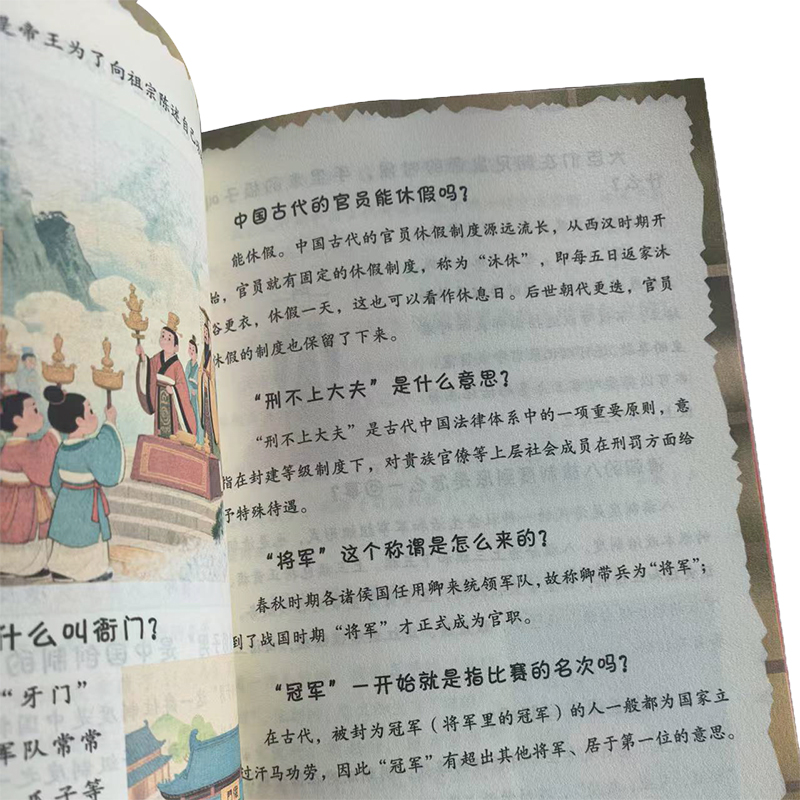 是帝王为了向祖宗陈述自己
什么叫衙门？
“牙门”
军队常常
爪子等
中国古代的官员能休假吗？
能休假。中国古代的官员休假制度源远流长，从西汉时期开
始，官员就有固定的休假制度，称为“沐休”，即每五日返家沐
浴更衣，休假一天，这也可以看作休息日。后世朝代更迭，官员
休假的制度也保留了下来。
“刑不上大夫”是什么意思？
“刑不上大夫”是古代中国法律体系中的一项重要原则，意
指在封建等级制度下，对贵族官僚等上层社会成员在刑罚方面给
予特殊待遇。
“将军”这个称谓是怎么来的？
春秋时期各诸侯国任用卿来统领军队，故称卿带兵为“将军”；
到了战国时期“将军”才正式成为官职。
“冠军”一开始就是指比赛的名次吗？
在古代，被封为冠军（将军里的冠军）的人一般都为国家立
过汗马功劳，因此“冠军”有超出其他将军、居于第一位的意思。